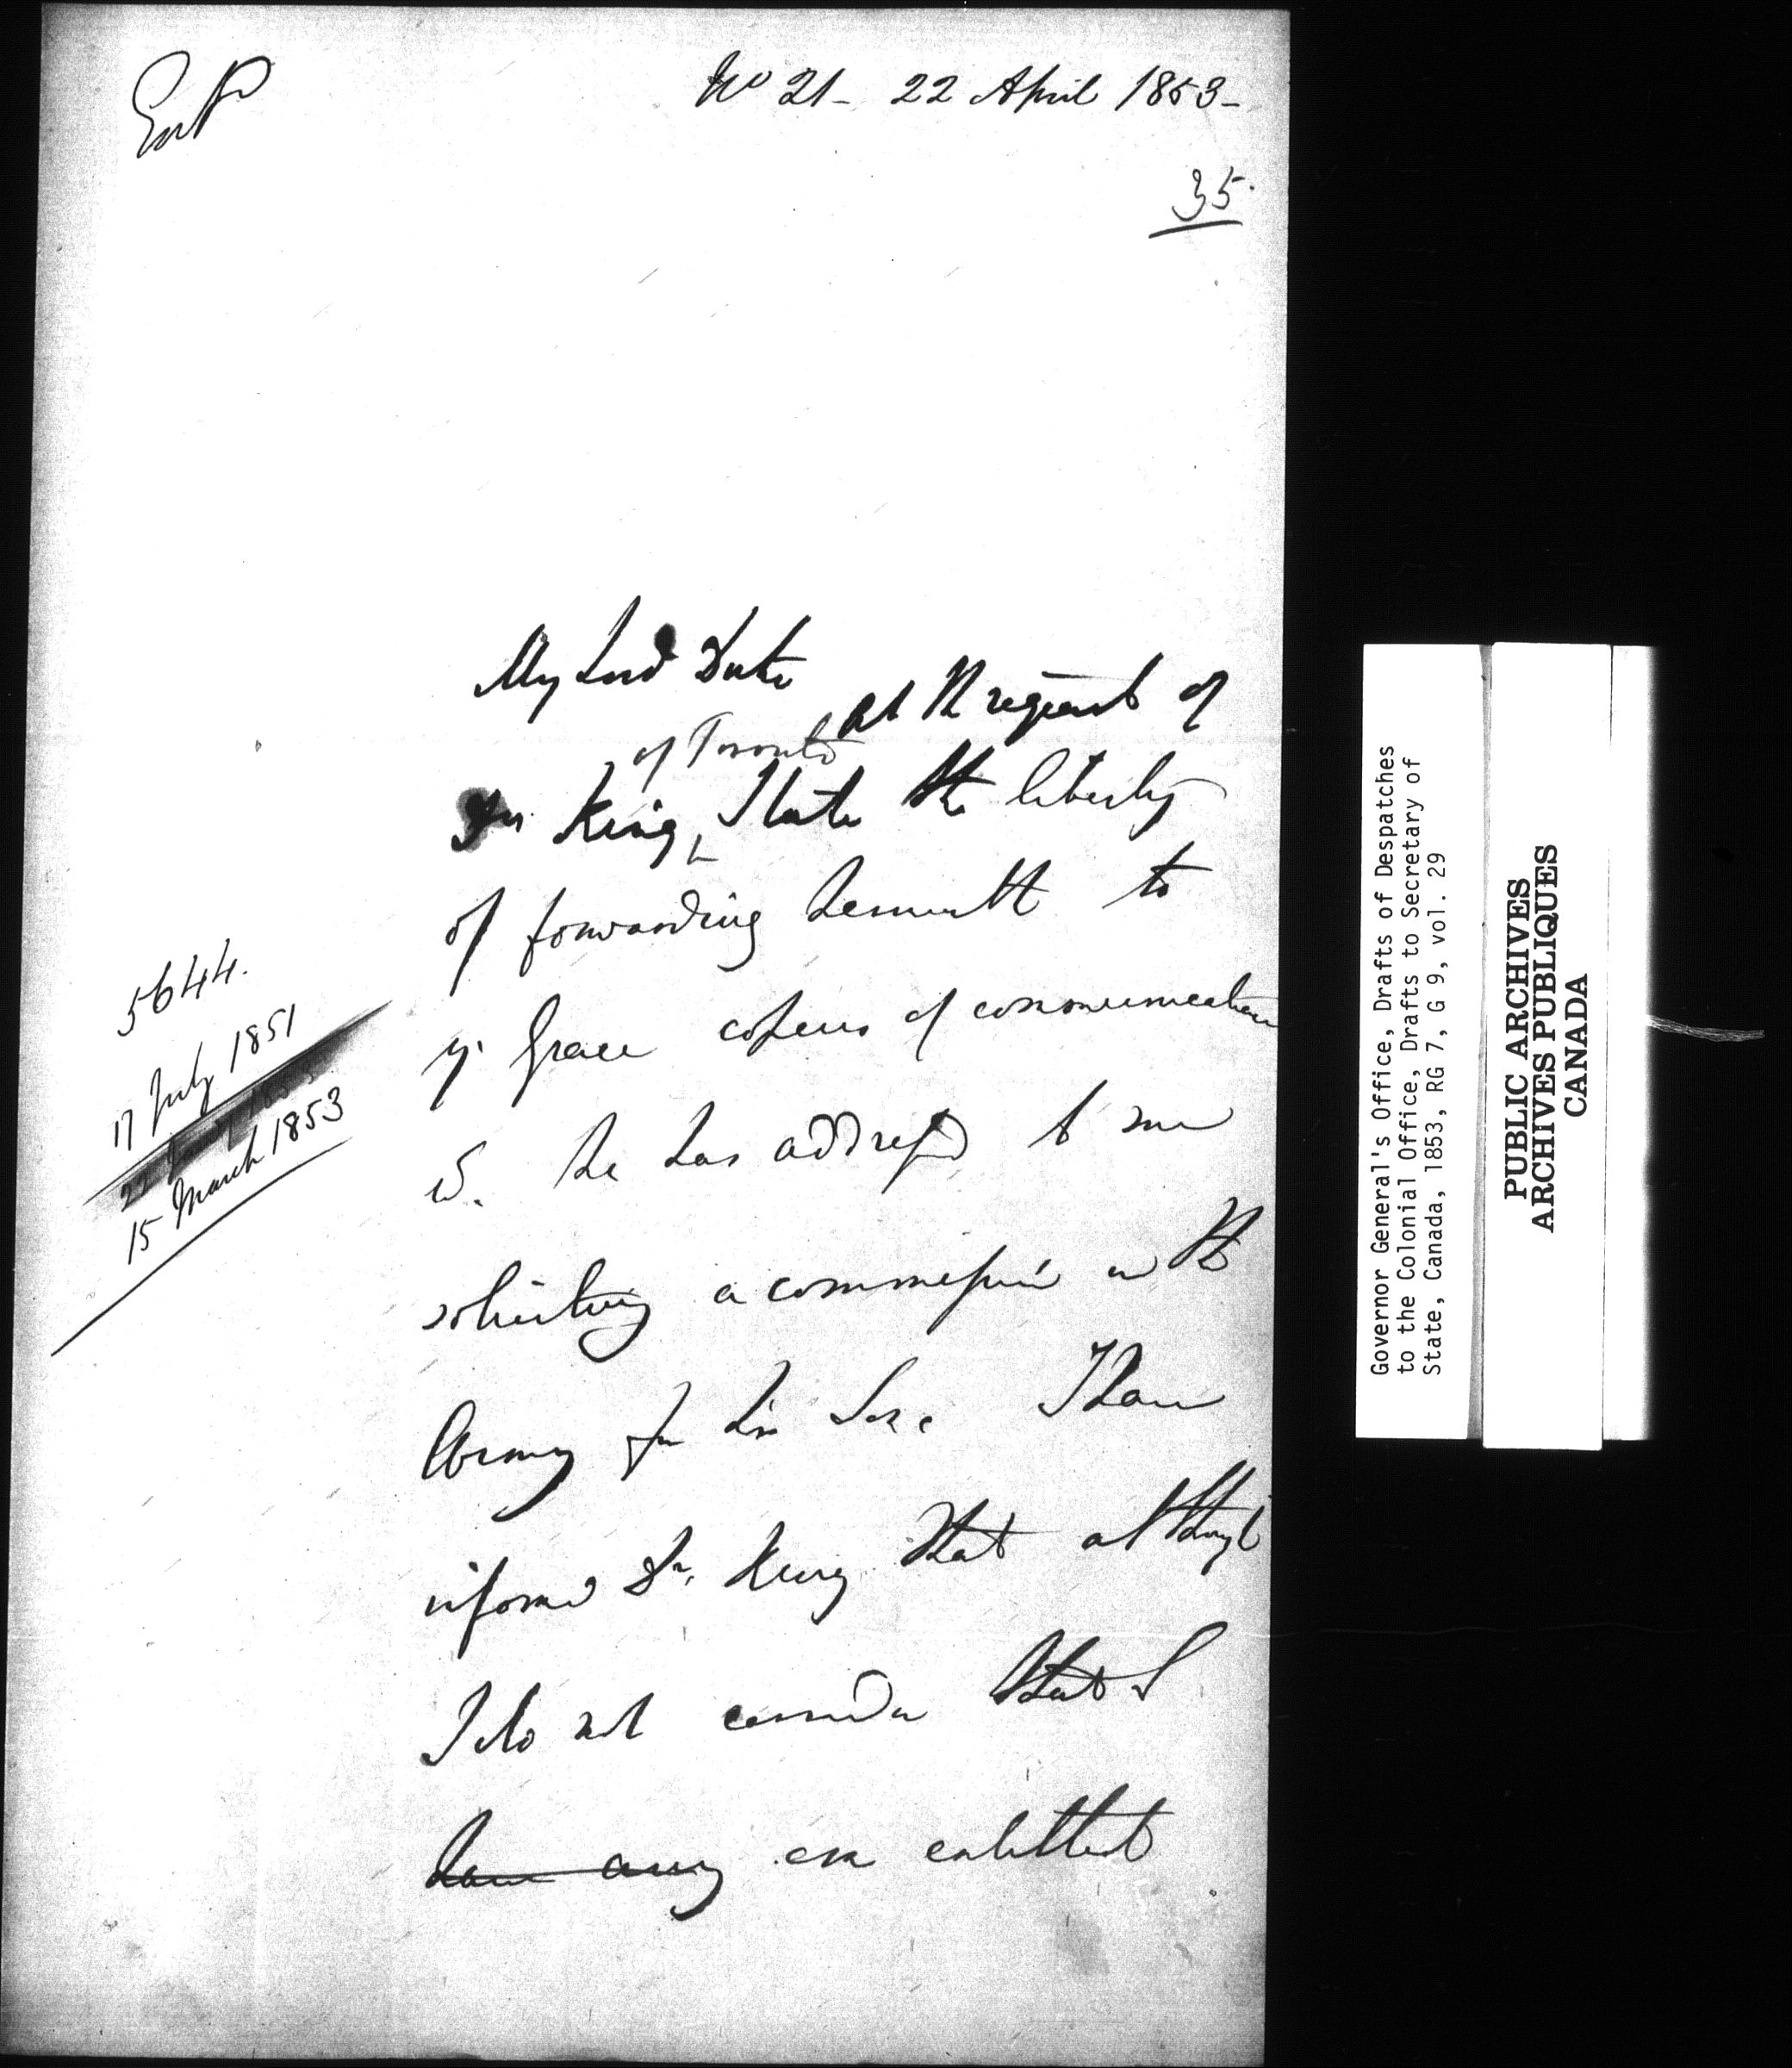 No 21 - 22 April 1853 -
35.
My Lord Duke
At the request of
of Toronto
Dr. King, I take the liberty
of forwarding herewith to
yr. Grace copies of communications
w. he has addressed to me
soliciting a commission in the
Army for his Son. I have
informed Dr. King that although
I do not consider that I
have any am entitled
5644.
17 July 1851
15 March 1853
Governor General's Office, Drafts of Despatches
to the Colonial Office, Drafts to Secretary of
State, Canada, 1853, RG 7, G 9, vol. 29
PUBLIC ARCHIVES
ARCHIVES PUBLIQUES
CANADA